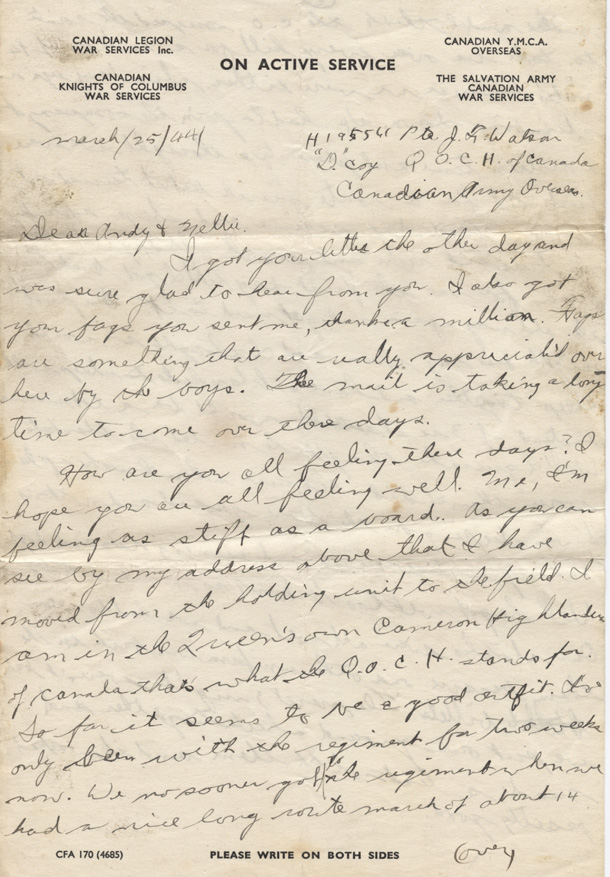 CANADIAN LEGION
WAR SERVICES Inc.
CANADIAN
KNIGHTS OF COLUMBUS
WAR SERVICES
ON ACTIVE SERVICE
CANADIAN Y.M.C.A.
OVERSEAS
THE SALVATION ARMY
CANADIAN
WAR SERVICES
march/25/44
Pte J. Watson
"D." coy Q.O.C.H. of Canada
Canadian Army Overseas.
Dear Andy & Nellie.
I got your letter the other day and
was sure glad to hear from you. I also got
your fags you sent me, thanks a million. Fags
are something that are really appreciated over
here by the boys. The mail is taking a long
time to come over these days.
How are you all feeling these days? I
hope you are all feeling well. Me, I'm
feeling as stiff as a board. As you can
see by my address above that I have
moved from the holding unit to the field. I
am in the Queen's own Cameron Highlanders
of canada thats what the Q.O.C.H. stands for.
So far it seems to be a good outfit. I've
only been with the regiment for two weeks
now. We no sooner got to the regiment when we
had a nice long route march of about 14
CFA 170 (4685)
PLEASE WRITE ON BOTH SIDES
(over)